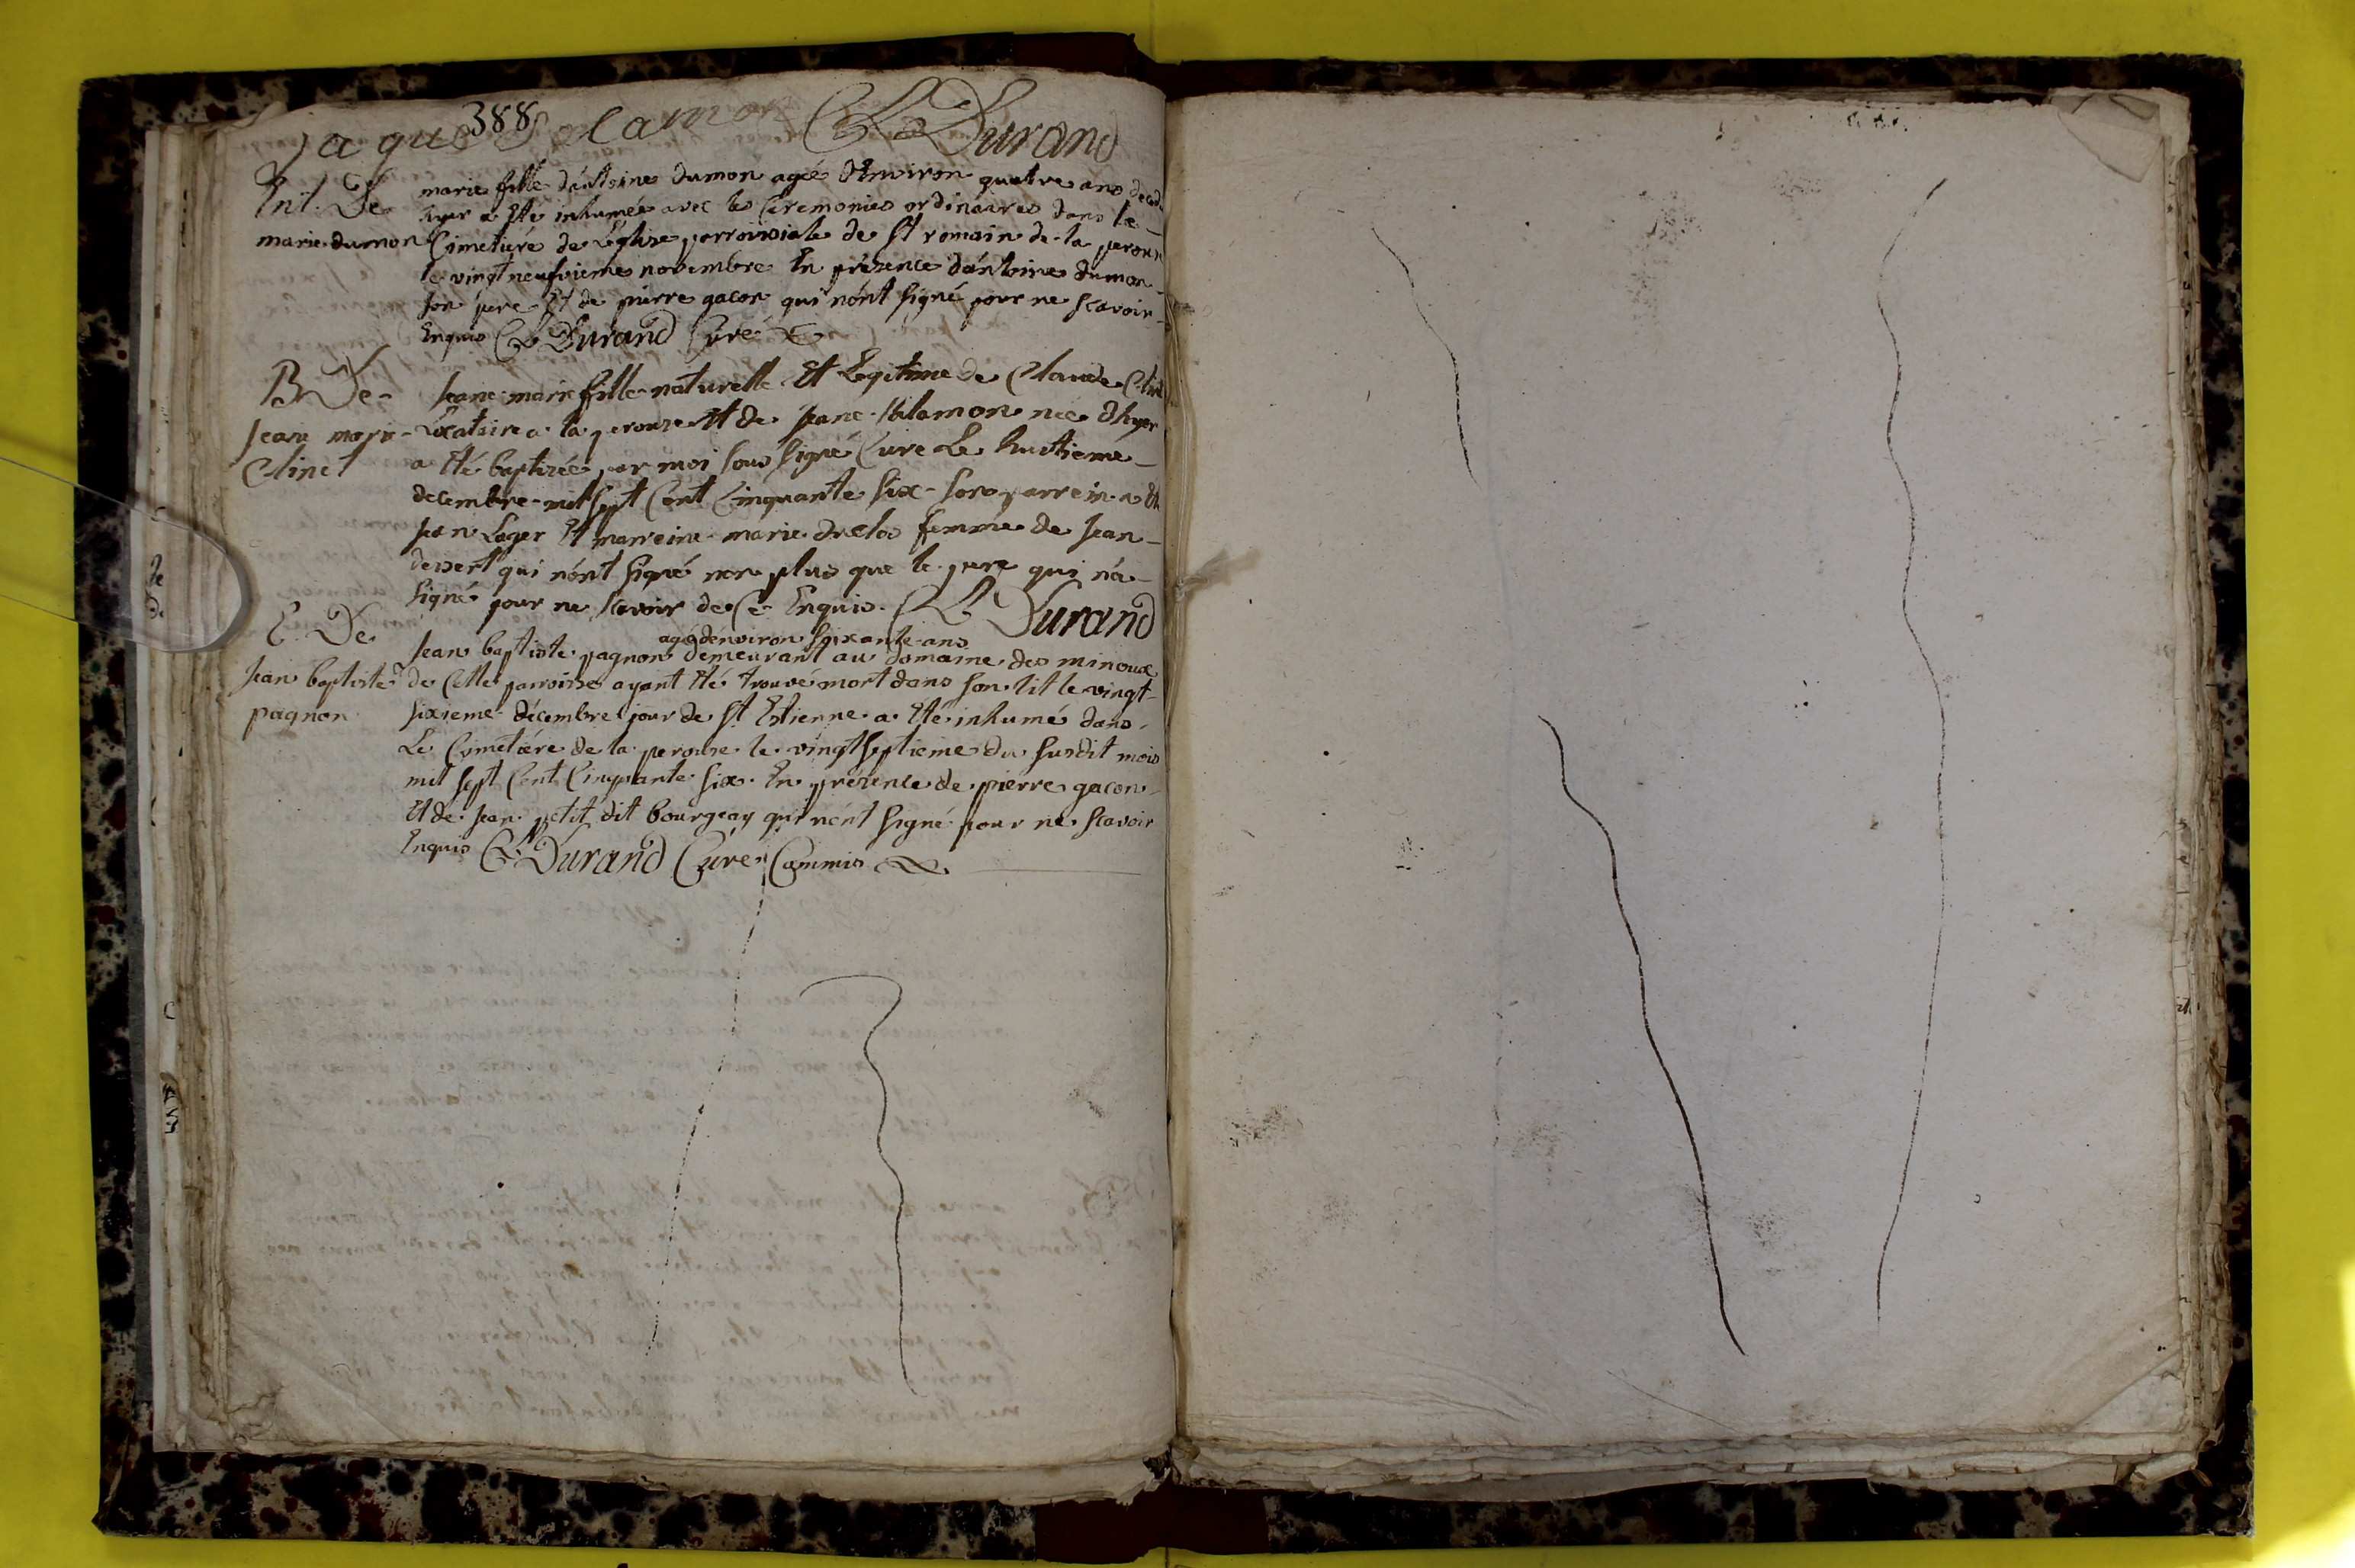 388
jaque salamon C L Durand
Ent. De marie fille d'antoine dumon agée d'Environ quatre ans decedé
hyer a Eté inhumée avec les Ceremonies ordinaires dans le
marie dumon Cimetiére de L'Eglise parroissiale de St romain de la perouze
le vingt neufvieme novembre En présence d'antoine dumon
son pere Et de pierre gacon qui n'ont signé pour ne scavoir
Enquis C L Durand Curé
B De Jeane marie fille naturelle Et Legitime de Claude Clinet
Jeane marie Locataire a la perouze Et de Jeane salamon née d'hyer
Clinet a Eté baptizée par moi sous signé Curé Le huitieme
decembre mil sept Cent Cinquante six son parrein a Eté
Jean Lager Et marreine marie duclos femme de Jean
dessert qui n'ont signé non plus que le pere qui n'a
signé pour ne scavoir de Ce Enquis. C L Durand
E. De agé d'environ soixante ans
Jean baptiste pagnon demeurant au domaine des minoux
Jean baptiste de Cette parroisse ayant Eté trouvé mort dans son lit le vingt
pagnon sixieme décembre jour de St Estienne a Eté inhumé dans
Le Cimetiére de la perouze le vingt septieme du susdit mois
mil sept Cent Cinquante six En présence de pierre gacon
Et de Jean petit dit bourgeay qui n'ont signé pour ne scavoir
Enquis C L Durand Curé Commis